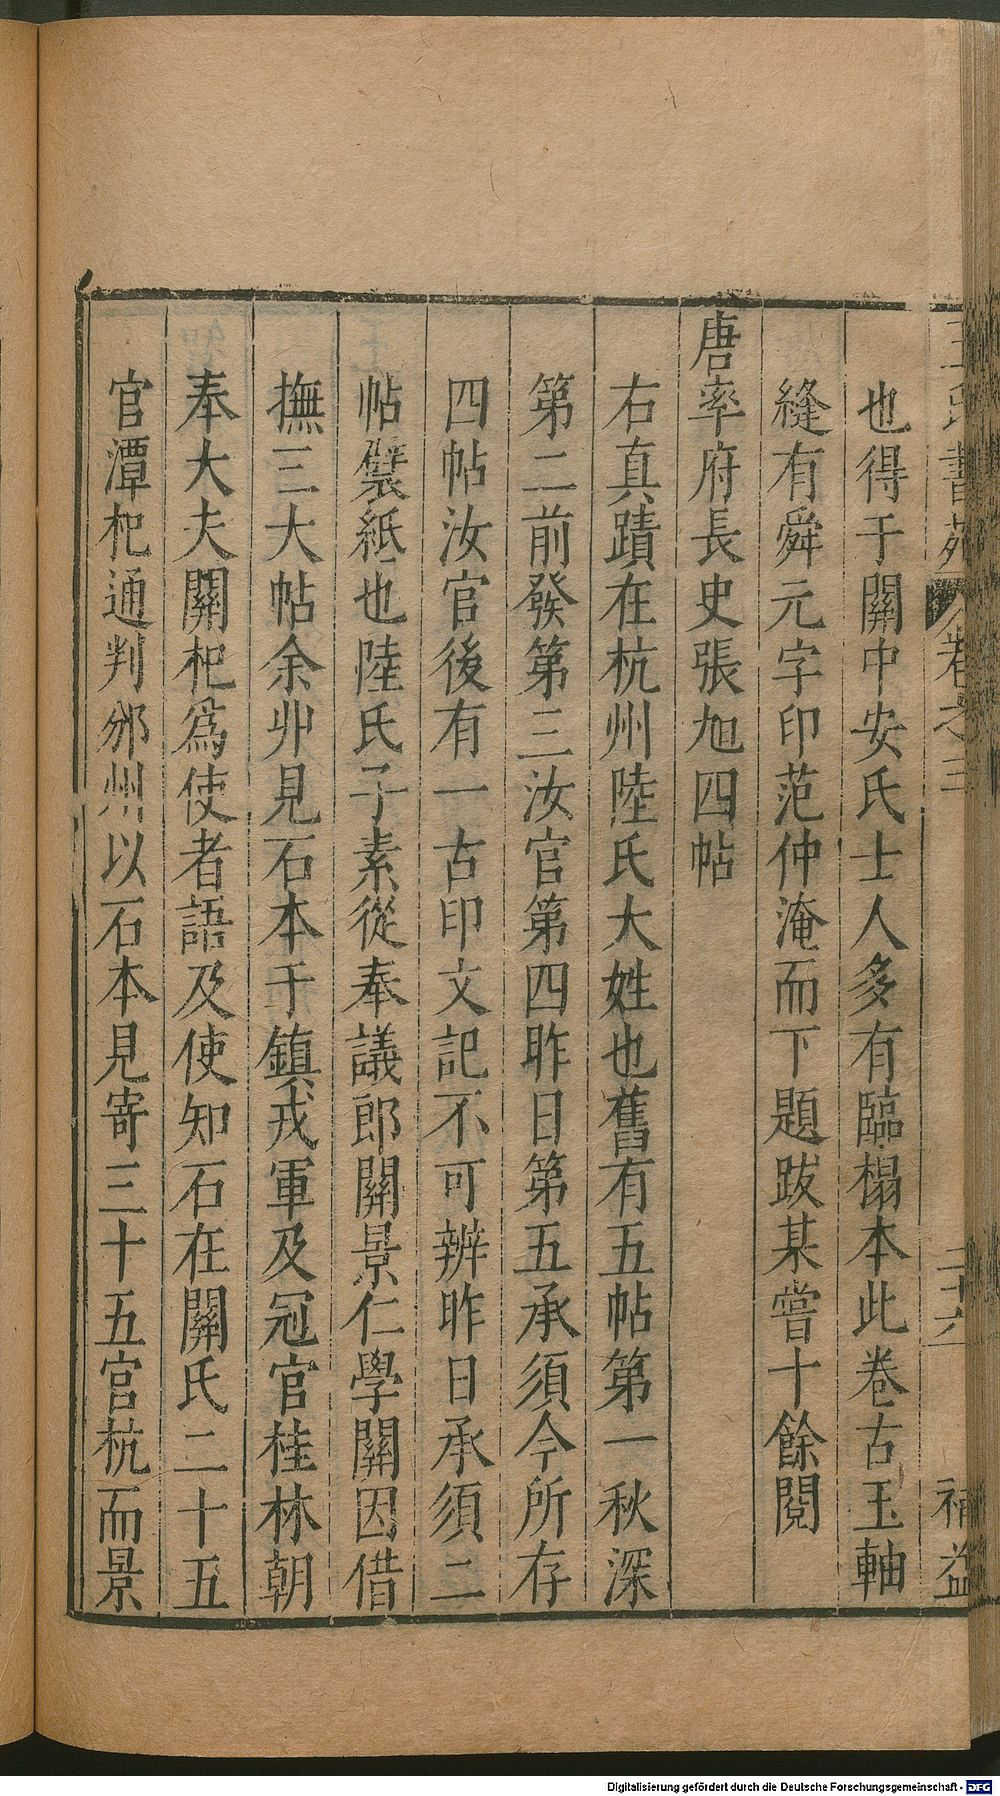 王氏書苑 卷之三 二十六 補益
也得于關中安氏士人多有臨榻本此卷古玉軸
縫有舜元字印范仲淹而下題跋某嘗十餘閱
唐率府長史張旭四帖
右真蹟在杭州陸氏大姓也舊有五帖第一秋深
第二前發第三汝官第四昨日第五承須今所存
四帖汝官後有一古印文記不可辨昨日承須二
帖襞紙也陸氏子素從奉議郎關景仁學關因借
撫三大帖余丱見石本于鎮戎軍及冠官桂林朝
奉大夫關杞為使者語及使知石在關氏二十五
官潭杞通判邠州以石本見寄三十五官杭而景
Digitalisierung gefördert durch die Deutsche Forschungsgemeinschaft - DFG